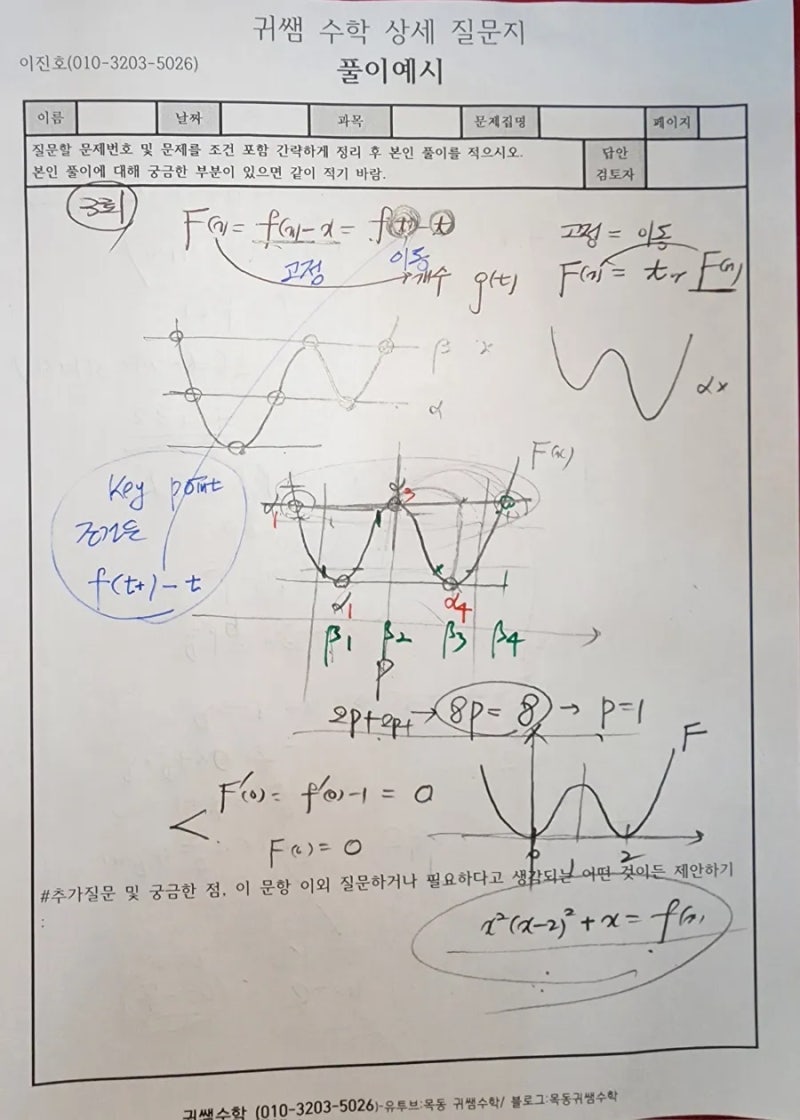 귀쌤 수학 상세 질문지
이진호(010-3203-5026)
풀이예시
이름 날짜 과목 문제집명 페이지
질문할 문제번호 및 문제를 조건 포함 간략하게 정리 후 본인 풀이를 적으시오.
본인 풀이에 대해 궁금한 부분이 있으면 같이 적기 바람.
답안
검토자
3회
F(x) = f(x)-x = f(t)-t
고정 이동
개수 g(t)
고정 = 이동
F(x) = t, F(x)
β x
α
αx
F(x)
Key point
f(t)-t
α1 α3
α1 α4
β1 β2 β3 β4
P
2p+2p+ → 8p = 8 → p=1
F
F'(0) = f'(0)-1 = 0
F(0) = 0
1 2
#추가질문 및 궁금한 점, 이 문항 이외 질문하거나 필요하다고 생각되는 어떤 것이든 제안하기
:
x²(x-2)²+x = f(x)
귀쌤수학 (010-3203-5026)-유투브:목동 귀쌤수학/ 블로그:목동귀쌤수학